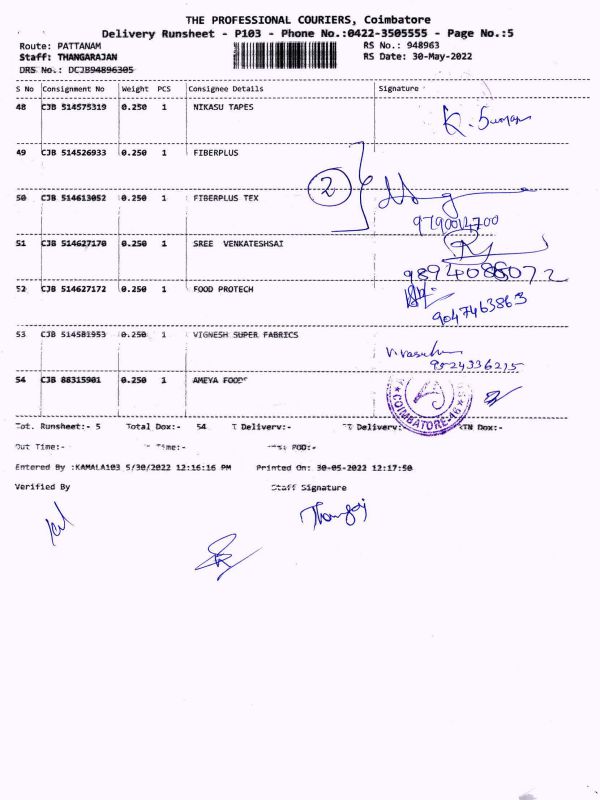 THE PROFESSIONAL COURIERS, Coimbatore
Delivery Runsheet - P103 - Phone No.:0422-3505555 - Page No.:5
Route: PATTANAM RS No.: 948963
Staff: THANGARAJAN RS Date: 30-May-2022
DRS No.: DCJB94896305
S No Consignment No Weight PCS Consignee Details Signature
48 CJB 514575319 0.250 1 NIKASU TAPES
K. Suman
49 CJB 514526933 0.250 1 FIBERPLUS
2
50 CJB 514613052 0.250 1 FIBERPLUS TEX
9790014700
51 CJB 514627170 0.250 1 SREE VENKATESHSAI
9894088072
52 CJB 514627172 0.250 1 FOOD PROTECH
9047463863
53 CJB 514581953 0.250 1 VIGNESH SUPER FABRICS
9524336215
54 CJB 88315901 0.250 1 AMEYA FOODS
COIMBATORE-16
Tot. Runsheet:- 5 Total Dox:- 54 T Delivery:- Delivery:- RTN Dox:-
Out Time:- Time:- POD:-
Entered By :KAMALA103 5/30/2022 12:16:16 PM Printed On: 30-05-2022 12:17:50
Verified By Staff Signature
Thangaraj